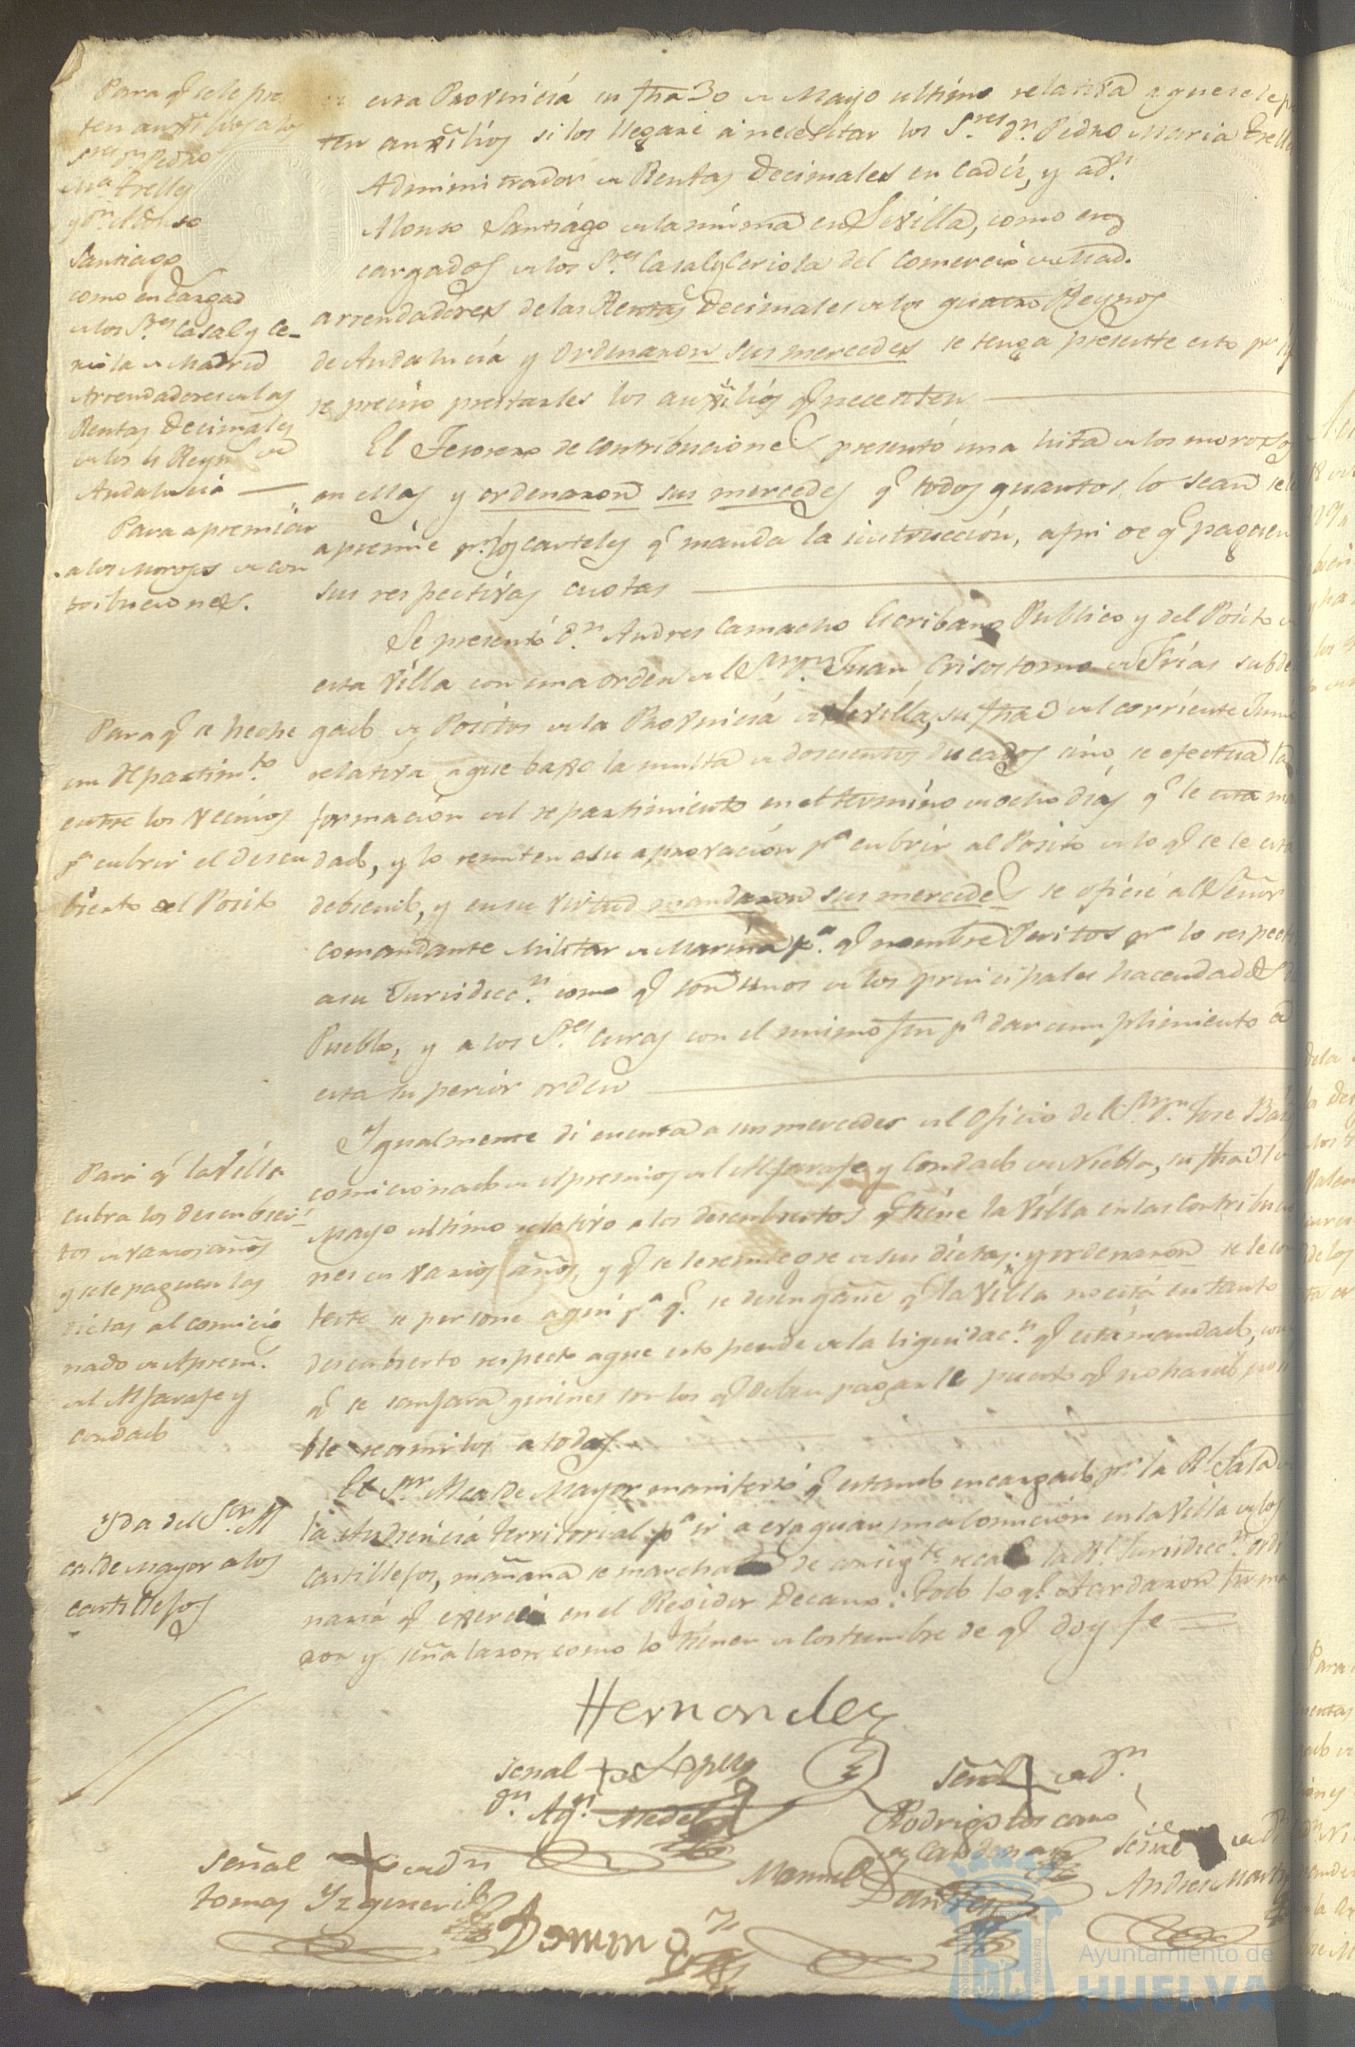 Para q.e se le pres
ten auxilios a los
S.res D.n Pedro
M.a Trelles
y D.n Alonso
Santiago
como encargad
de los S.res Casal y Ce-
riola de Madrid
Arrendadores de las
Rentas Decimales
de los 4 Reyn.s de
Andalucía
esta Provincia su fha 30 de Mayo ultimo relativa a que se le p
ten auxilios si los llegare a necesitar los S.res D.n Pedro Maria Trelles
Administrador de Rentas Decimales en Cadiz, y a D.n
Alonso Santiago de la misma en Sevilla, como en
cargados de los S.res Casal y Ceriola del Comercio de Mad.
arrendadores de las Rentas Decimales de los quatro Reynos
de Andalucia y ordenaron sus mercedes se tenga presente esto p.r si
se preciso prestarles los auxilios q.e necesiten
Para apremiar
a los Morosos de con
tribuciones.
El Tesorero de Contribuciones presentó una lista de los morosos
en ellas y ordenaron sus mercedes q.e todos quantos lo sean se le
apremie p.r los carteles q.e manda la instruccion, a fin de q.e paguen
sus respectivas cuotas
Para q.e se heche
un Repartim.to
entre los vecinos
p.a cubrir el descu
bierto del Posito
Se presentó D.n Andres Camacho Escribano Publico y del Posito de
esta Villa con una orden del S.r D.n Juan Crisostomo de Frias subde
gado de Positos de la Provincia de Sevilla, su fha 3 del corriente Junio
relativa a que baxo la multa de doscientos ducados sino se efectua la
formacion del repartimiento en el termino de ocho dias q.e le esta ma
dado, y lo remiten a su aprovacion p.a cubrir al Posito de lo q.e se le esta
debiendo, y en su virtud mandaron sus mercedes se oficie al Señor
Comandante Militar de Marina p.a q.e nombre Peritos p.r lo respect
a su Jurisdicc.n como q.e son unos de los principales hacendados
Pueblo, y a los S.res Curas con el mismo fin p.a dar cumplimiento a
esta superior orden
Para q.e la Villa
cubra los descubier-
tos de varios años
y se le paguen las
dietas al comicio
nado de Aprem.s
del Alfarafe y
Condado
Igualmente di cuenta a sus mercedes del oficio del S.r D.n Jose Bar
comicionado de Apremios del Alfarafe y Condado de Niebla, su fha 31 de
Mayo ultimo relativo a los descubiertos q.e tiene la Villa en las Contribucio
nes en varios años, y q.e se le reintegre de sus dietas; y ordenaron se le con
teste se persone aqui p.a q.e se desengañe q.e la Villa no está en tanto
descubierto respecto a que esto pende de la liquidac.n q.e está mandado, con
q.e se sanfara quienes son los q.e deben pagarle puesto q.e no ha sido posi
ble reunirlos a todos
Yda del S.or Al
calde Mayor a los
Castillejos
El S.or Alcalde Mayor manifestó q.e estando encargado p.r la R.l Sala de
la Audiencia territorial p.a ir a evaquar una comicion en la Villa de los
Castillejos, mañana se marcha de consig.te recae la R.l Jurisdicc.n ordi
naria q.e exercia en el Regidor Decano: Todo lo q.e Acordaron firma
ron y señalaron como lo tienen de costumbre de q.e doy fe
Hernandez
señal + de Lopez
D.n Ag.n Medel
señal + de D.n
Rodrigo Loscano
de Cardenas
señal + de D.n
tomas Yzquierdo
Manuel
señal de D.n
Andres Mart
Domin
Ayuntamiento de
HUELVA